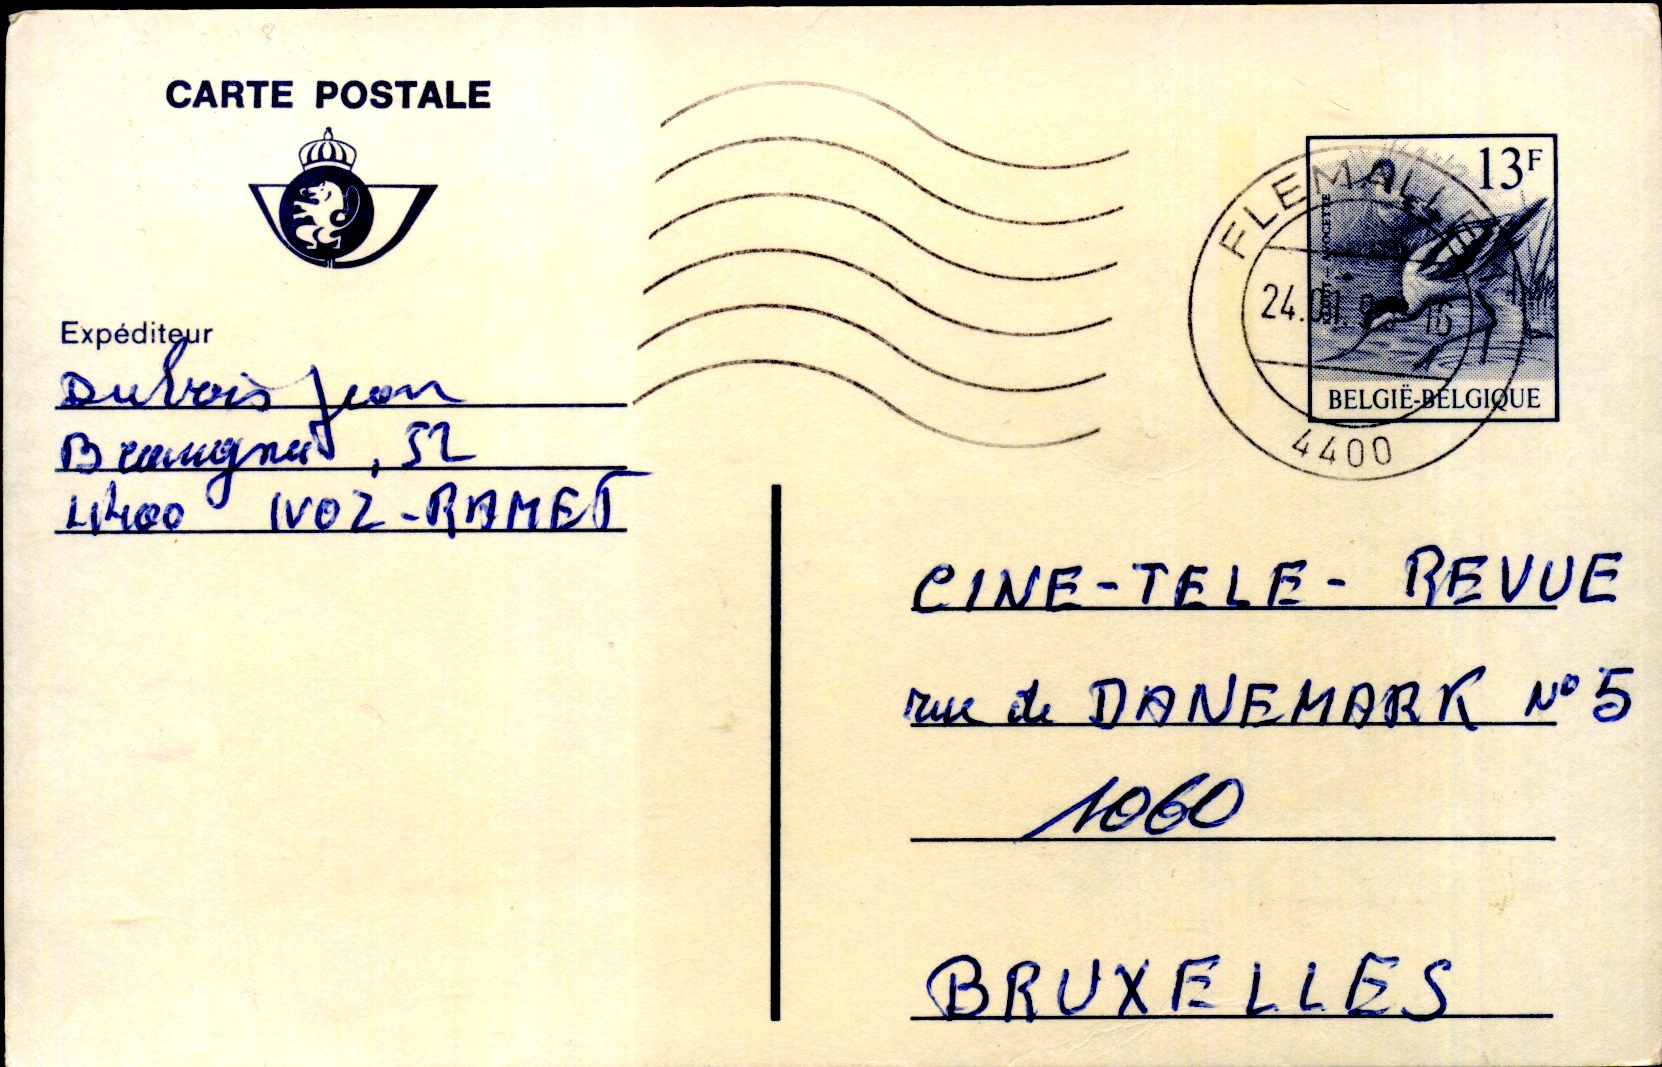 CARTE POSTALE
13F
FLEMALLE
24.01.
BELGIË-BELGIQUE
4400
Expéditeur
Dubois Jean
, 52
4400 IVOZ-RAMET
CINE-TELE-REVUE
rue de DANEMARK N° 5
1060
BRUXELLES